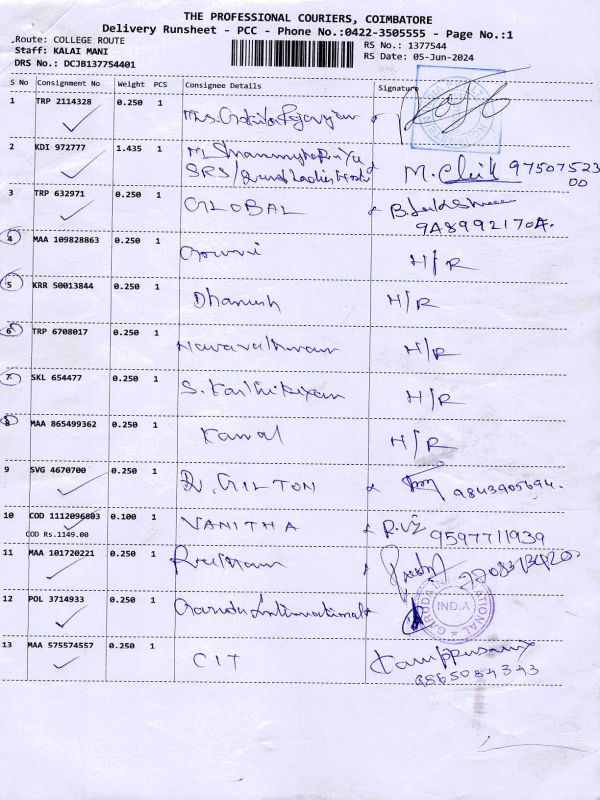 THE PROFESSIONAL COURIERS, COIMBATORE
Delivery Runsheet - PCC - Phone No.:0422-3505555 - Page No.:1
Route: COLLEGE ROUTE
Staff: KALAI MANI
DRS No.: DCJB137754401
RS No.: 1377544
RS Date: 05-Jun-2024
S No Consignment No Weight PCS Consignee Details Signature
1 TRP 2114328 0.250 1
2 KDI 972777 1.435 1 M. 9750752300
SRS/
3 TRP 632971 0.250 1 GLOBAL
9A8992170A.
4 MAA 109828863 0.250 1 Gowri H/R
5 KRR 50013844 0.250 1 Dhanush H/R
6 TRP 6708017 0.250 1 H/R
7 SKL 654477 0.250 1 S. Karthikeyan H/R
8 MAA 865499362 0.250 1 Kamal H/R
9 SVG 4670700 0.250 1 GILTON 9843905694.
10 COD 1112096803 0.100 1 VANITHA 9597711939
COD Rs.1149.00
11 MAA 101720221 0.250 1
12 POL 3714933 0.250 1 INDIA
13 MAA 575574557 0.250 1 CIT